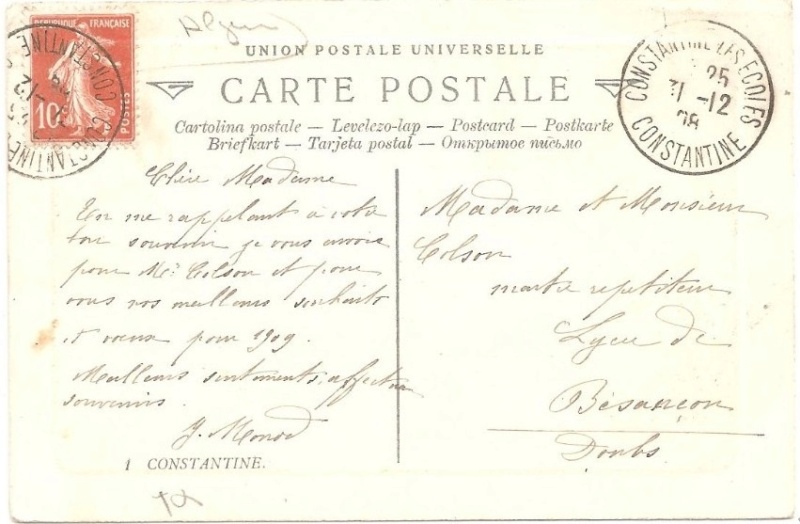 Algérie
RÉPUBLIQUE FRANÇAISE
10c
POSTES
CONSTANTINE
UNION POSTALE UNIVERSELLE
CARTE POSTALE
Cartolina postale — Levelezo-lap — Postcard — Postkarte
Briefkart — Tarjeta postal — Открытое письмо
CONSTANTINE LES ECOLES
25
31 -12
08
CONSTANTINE
Chère Madame
En me rappelant à votre
bon souvenir je vous envoie
pour Mr Colson et pour
vous nos meilleurs souhaits
et voeux pour 1909.
Meilleurs sentiments, affectueux
souvenirs.
J. Monod
1 CONSTANTINE.
Madame et Monsieur
Colson
repetiteur
Lycée de
Besançon
Doubs